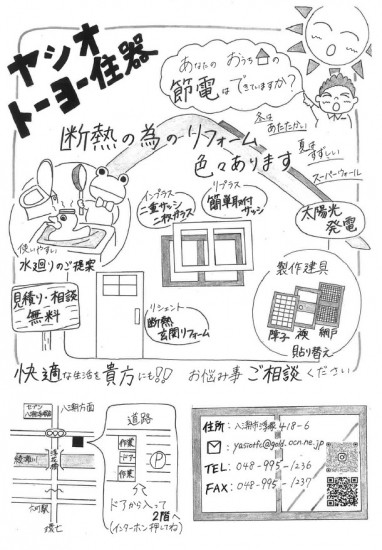 ヤシオ
トーヨー住器
あなたの おうち の
節電はできていますか?
断熱の為のリフォーム
色々あります
冬は
あたたかい
夏は
すずしい
スーパーウォール
太陽光
発電
インプラス
二重サッシ
二枚ガラス
リプラス
簡単取付
サッシ
使いやすい
水まわりのご提案
見積り・相談
無料
リシェント
断熱
玄関リフォーム
製作建具
障子 襖 網戸
貼り替え
快適な生活を貴方にも!! お悩み事ご相談ください
八潮方面
道路
作業
ドア
作業
P
ドアから入って
2階へ
(インターホン押してね)
綾瀬川
六町駅
住所:
418-6
TEL: 048-995-1236
FAX: 048-995-1237